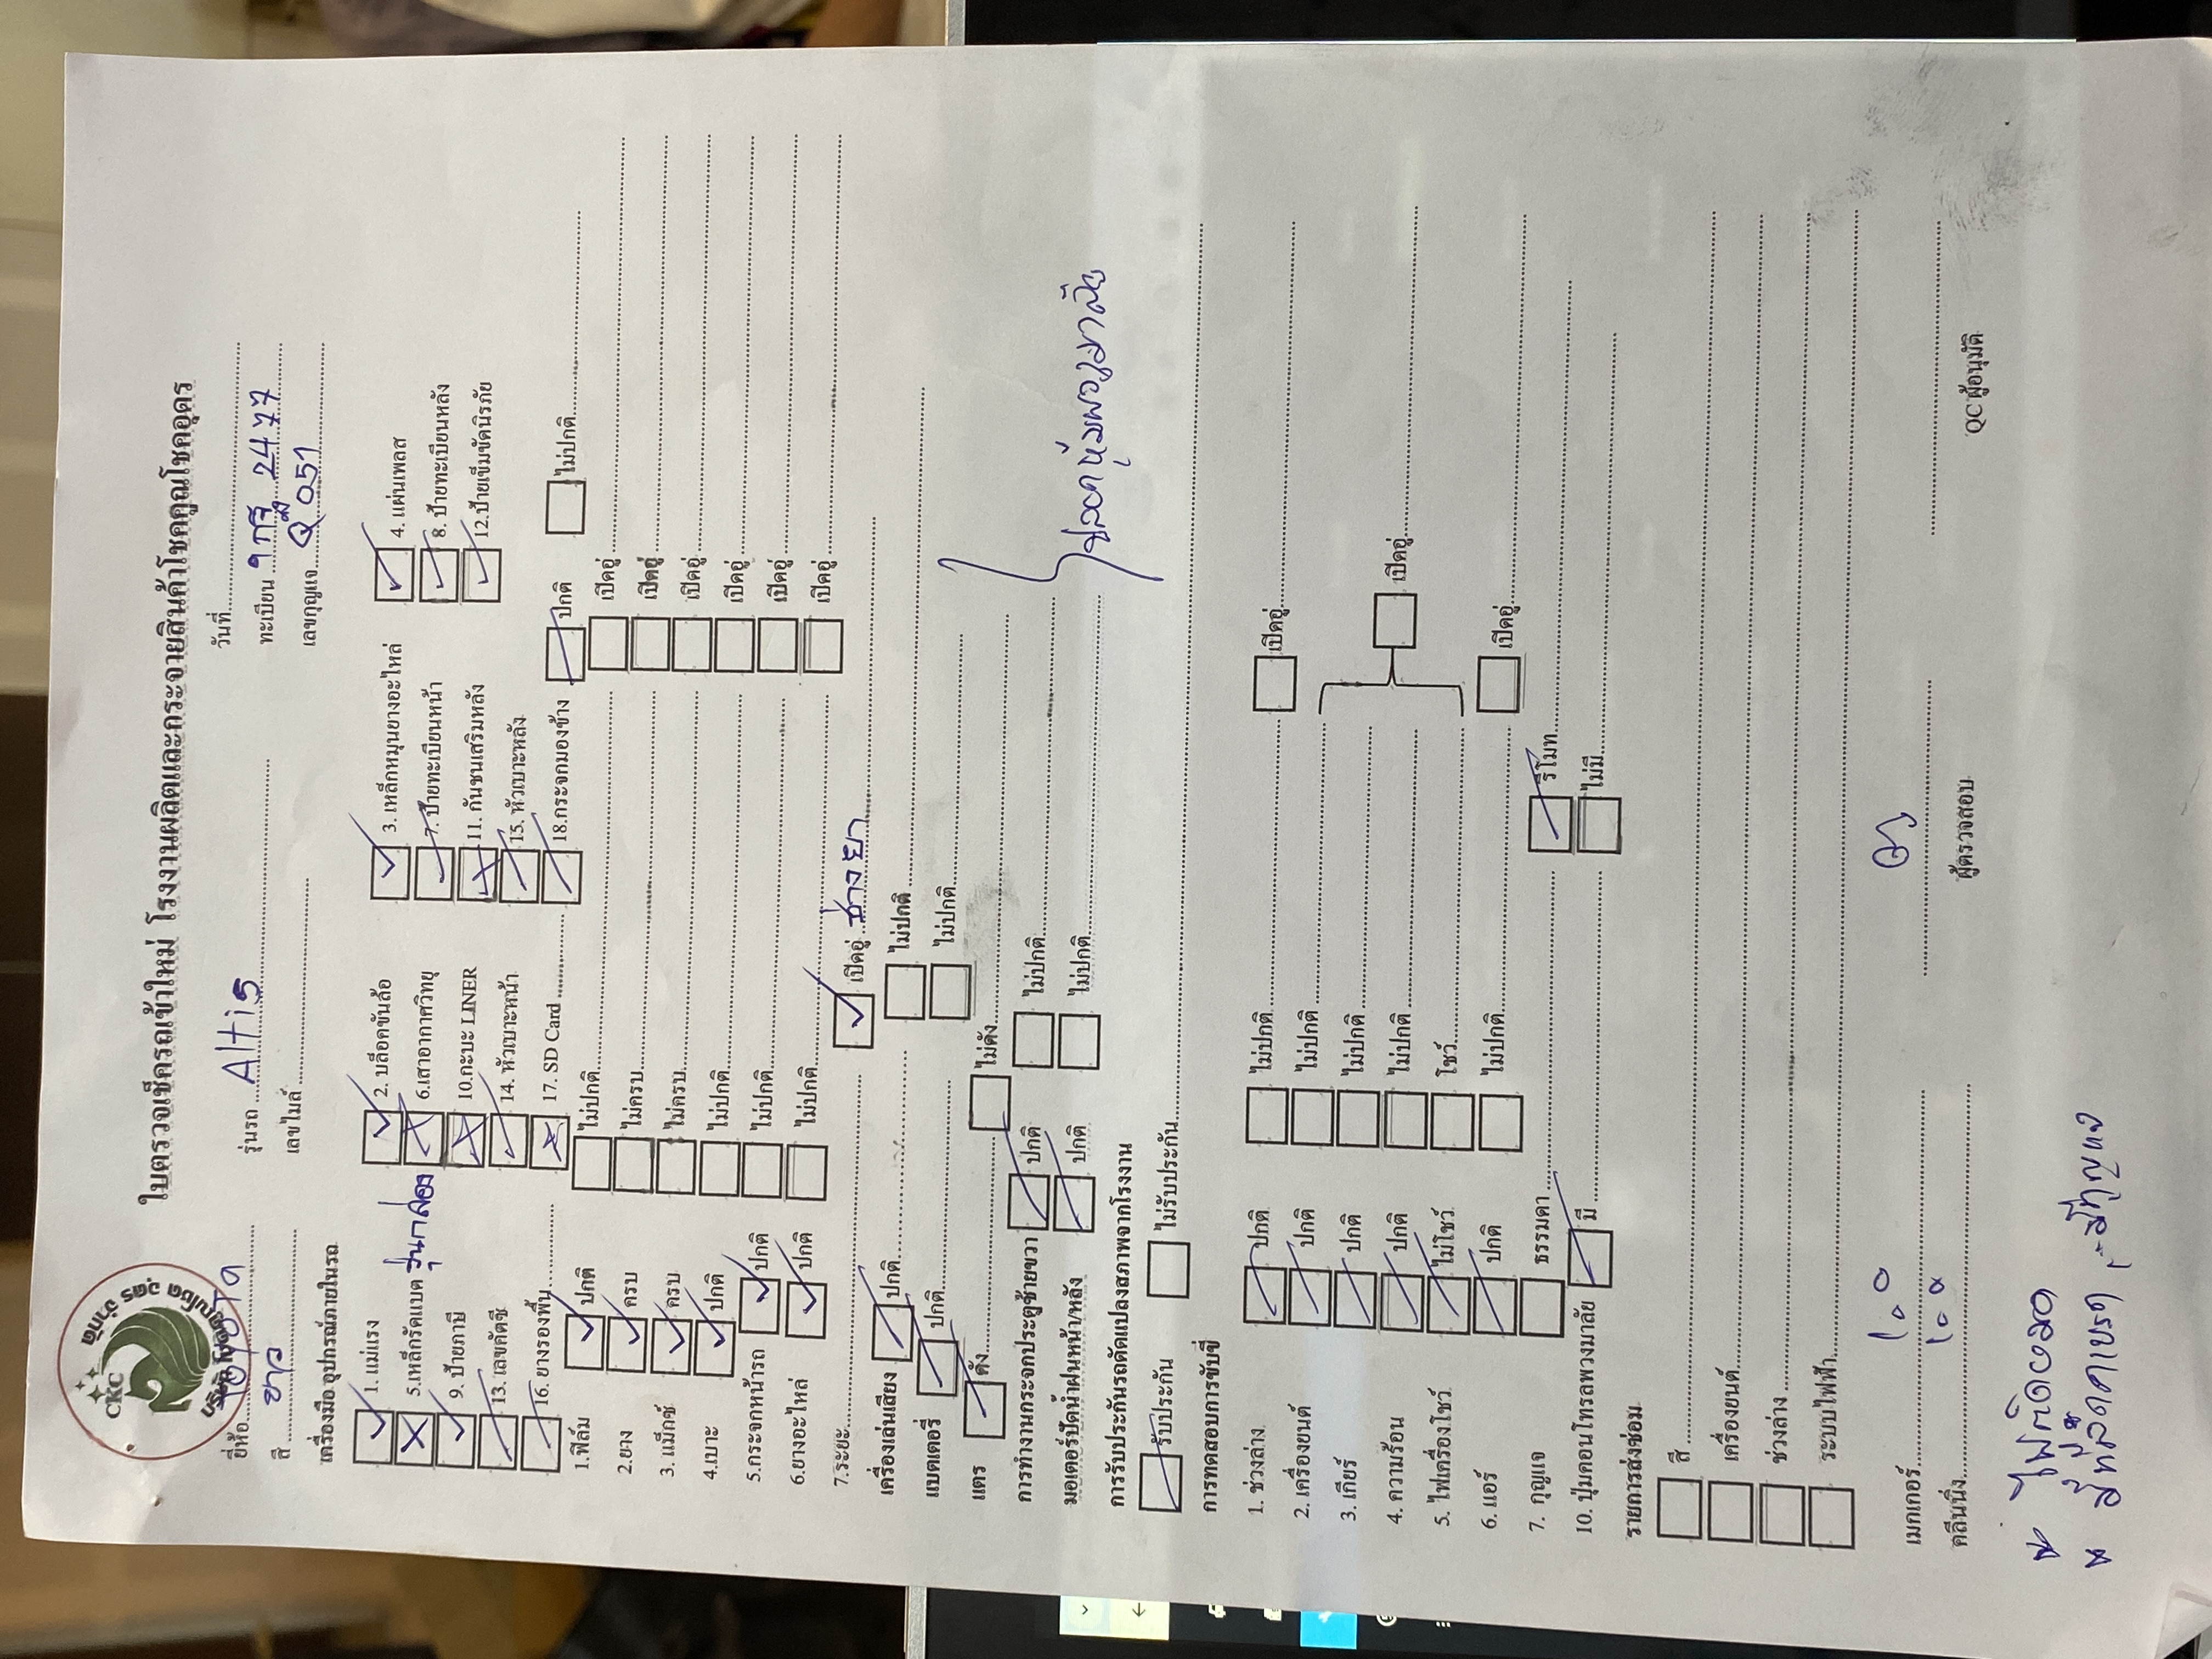 CKC
ใบตรวจเช็ครถเข้าใหม่ โรงงานผลิตและกระจายสินค้าโชคคูณโชคอุดร
ยี่ห้อ TOYOTA รุ่นรถ Altis วันที่
สี ขาว เลขไมล์ ทะเบียน 2477
เลขกุญแจ 051
เครื่องมือ อุปกรณ์ภายในรถ
✓ 1. แม่แรง ✓ 2. บล็อคขันล้อ ✓ 3. เหล็กหมุนยางอะไหล่ ✓ 4. แผ่นเพลส
✗ 5.เหล็กรัดแบต รุ่นกล่อง ✗ 6.เสาอากาศวิทยุ ✓ 7. ป้ายทะเบียนหน้า ✓ 8. ป้ายทะเบียนหลัง
✓ 9. ป้ายภาษี ✗ 10.กะบะ LINER ✗ 11. กันชนเสริมหลัง ✓ 12.ป้ายเข็มขัดนิรภัย
✓ 13. เลขคัตซี ✓ 14. หัวเบาะหน้า ✓ 15. หัวเบาะหลัง
✓ 16. ยางรองพื้น ✗ 17. SD Card ✓ 18.กระจกมองข้าง ✓ ปกติ ไม่ปกติ
1.ฟิล์ม ✓ ปกติ ไม่ปกติ เบิคอู่
2.ยาง ✓ ครบ ไม่ครบ เบิคอู่
3. แม็กซ์ ✓ ครบ ไม่ครบ เบิคอู่
4.เบาะ ✓ ปกติ ไม่ปกติ เบิคอู่
5.กระจกหน้ารถ ✓ ปกติ ไม่ปกติ เบิคอู่
6.ยางอะไหล่ ✓ ปกติ ไม่ปกติ เบิคอู่
7.ระยะ ✓ เบิคอู่ ช่างยา
เครื่องเล่นเสียง ✓ ปกติ ไม่ปกติ
แบตเตอรี่ ✓ ปกติ ไม่ปกติ
แตร ✓ ดัง ไม่ดัง
การทำงานกระจกประตูซ้ายขวา ✓ ปกติ ไม่ปกติ
มอเตอร์ปัดน้ำฝนหน้า/หลัง ✓ ปกติ ไม่ปกติ
ปลอกหุ้มพวงมาลัย
การรับประกันรถดัดแปลงสภาพจากโรงงาน
✓ รับประกัน ไม่รับประกัน
การทดสอบการขับขี่
1. ช่วงล่าง ✓ ปกติ ไม่ปกติ เบิคอู่
2. เครื่องยนต์ ✓ ปกติ ไม่ปกติ
3. เกียร์ ✓ ปกติ ไม่ปกติ
4. ความร้อน ✓ ปกติ ไม่ปกติ เบิคอู่
5. ไฟเครื่องโชว์ ✓ ไม่โชว์ โชว์
6. แอร์ ✓ ปกติ ไม่ปกติ เบิคอู่
7. กุญแจ ธรรมดา ✓ รีโมท
10. ปุ่มคอนโทรลพวงมาลัย ✓ มี ไม่มี
รายการส่งซ่อม
สี
เครื่องยนต์
ช่วงล่าง
ระบบไฟฟ้า
เมกเกอร์
คลีนนิ่ง
ผู้ตรวจสอบ QC ผู้อนุมัติ